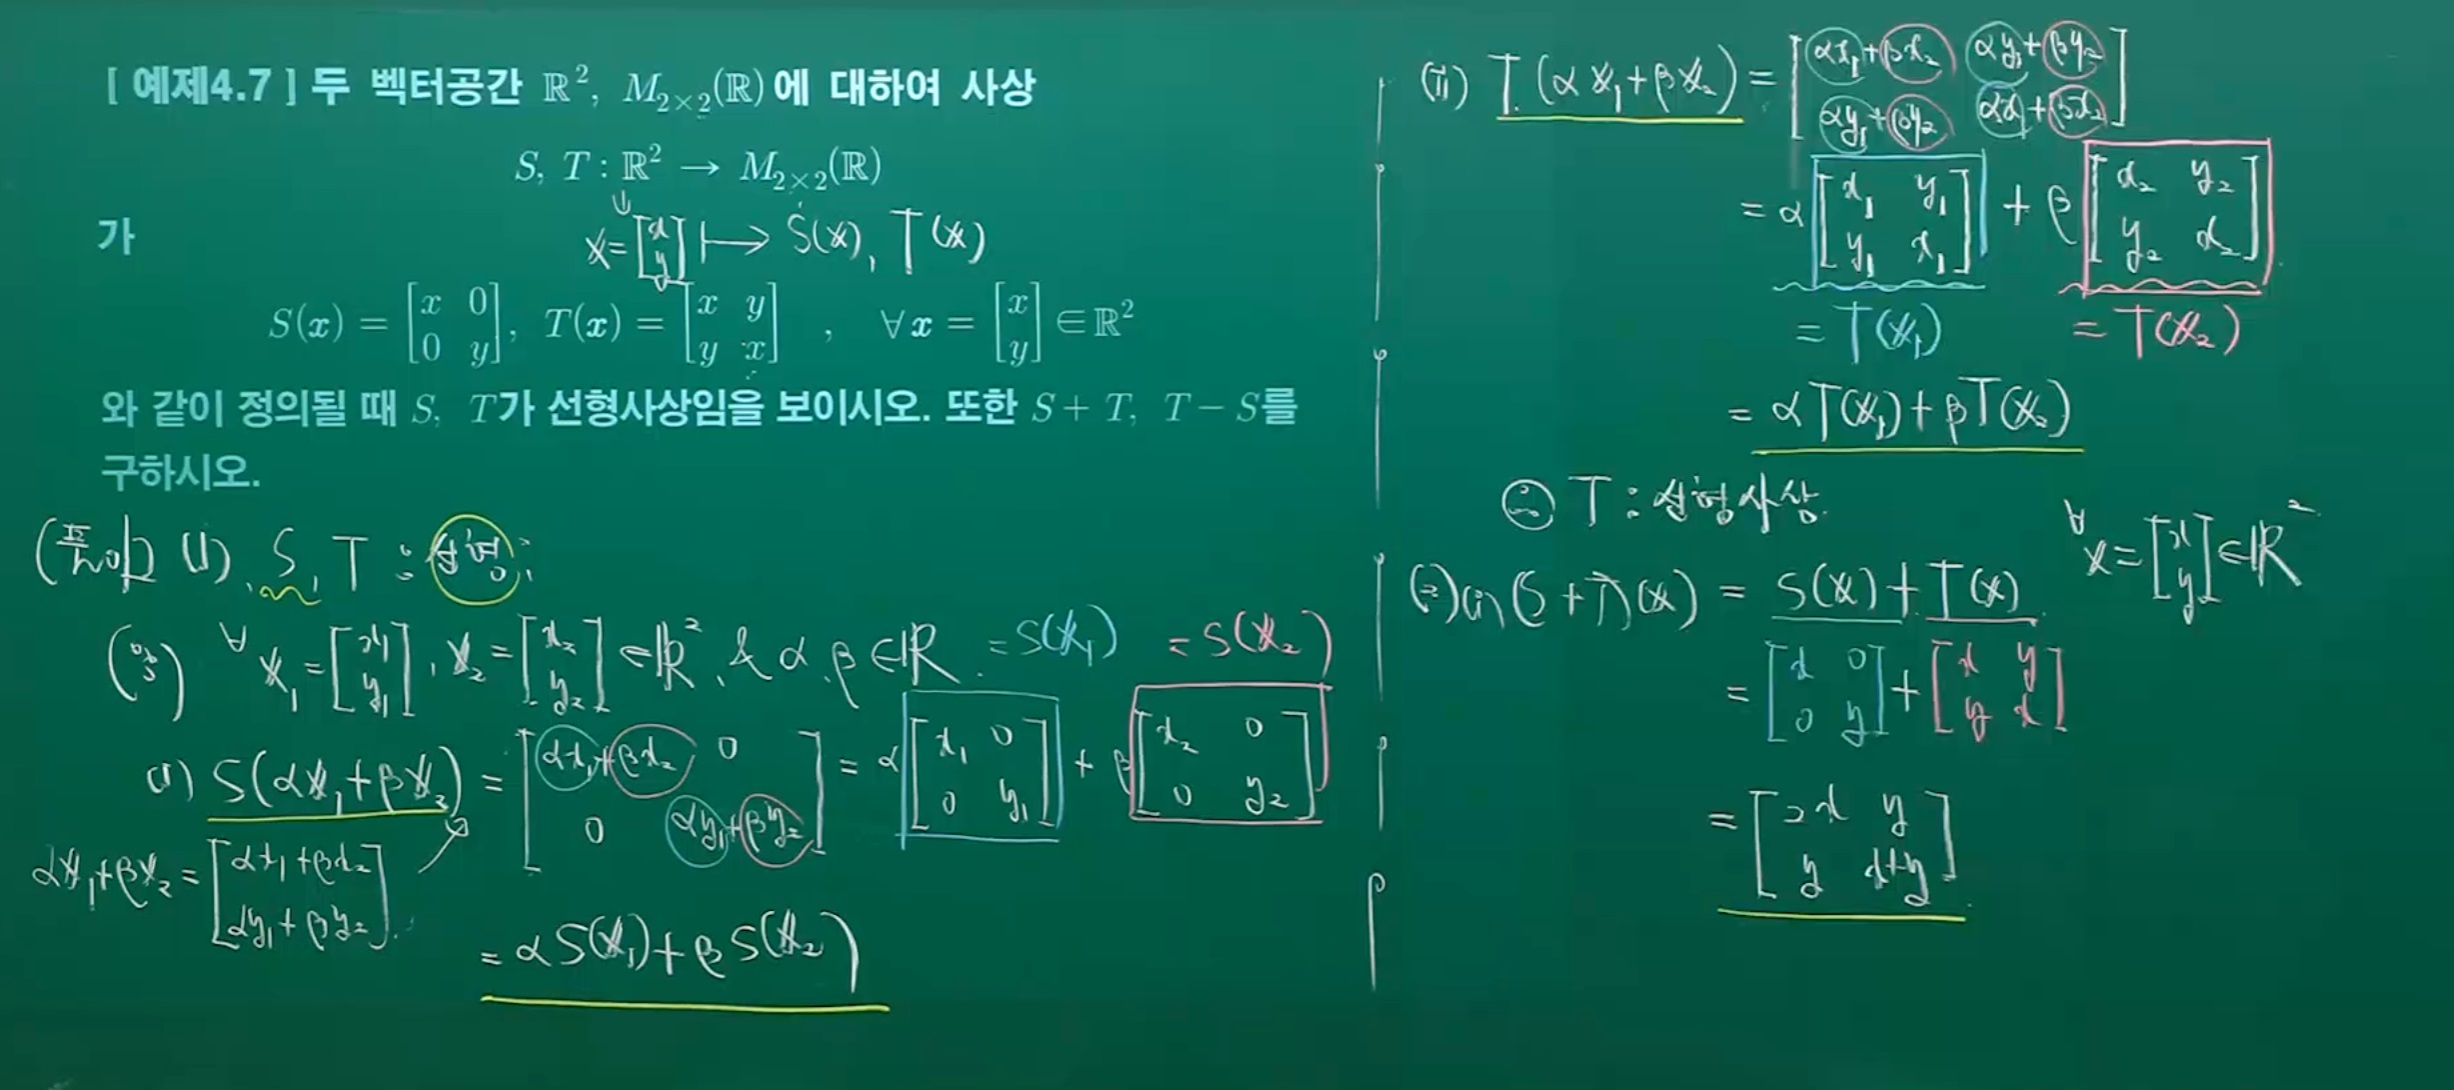 [ 예제4.7 ] 두 벡터공간 ℝ², M₂ₓ₂(ℝ)에 대하여 사상
S, T : ℝ² → M₂ₓ₂(ℝ)
가
x = [x; y] ↦ S(x), T(x)
S(x) = [x 0; 0 y], T(x) = [x y; y x] , ∀x = [x; y] ∈ ℝ²
와 같이 정의될 때 S, T가 선형사상임을 보이시오. 또한 S + T, T − S를
구하시오.
(풀이) (1) S, T : 선형;
(∵) ∀x₁ = [x₁; y₁], x₂ = [x₂; y₂] ∈ ℝ², & α, β ∈ ℝ.
= S(x₁) = S(x₂)
(i) S(αx₁+βx₂) = [αx₁+βx₂ 0; 0 αy₁+βy₂] = α[x₁ 0; 0 y₁] + β[x₂ 0; 0 y₂]
αx₁+βx₂ = [αx₁+βx₂; αy₁+βy₂]
= αS(x₁)+βS(x₂)
(ii) T(αx₁+βx₂) = [αx₁+βx₂ αy₁+βy₂; αy₁+βy₂ αx₁+βx₂]
= α[x₁ y₁; y₁ x₁] + β[x₂ y₂; y₂ x₂]
= T(x₁) = T(x₂)
= αT(x₁)+βT(x₂)
∴ T : 선형사상
(2) (i) (S+T)(x) = S(x)+T(x) ∀x = [x; y] ∈ ℝ²
= [x 0; 0 y] + [x y; y x]
= [2x y; y x+y]